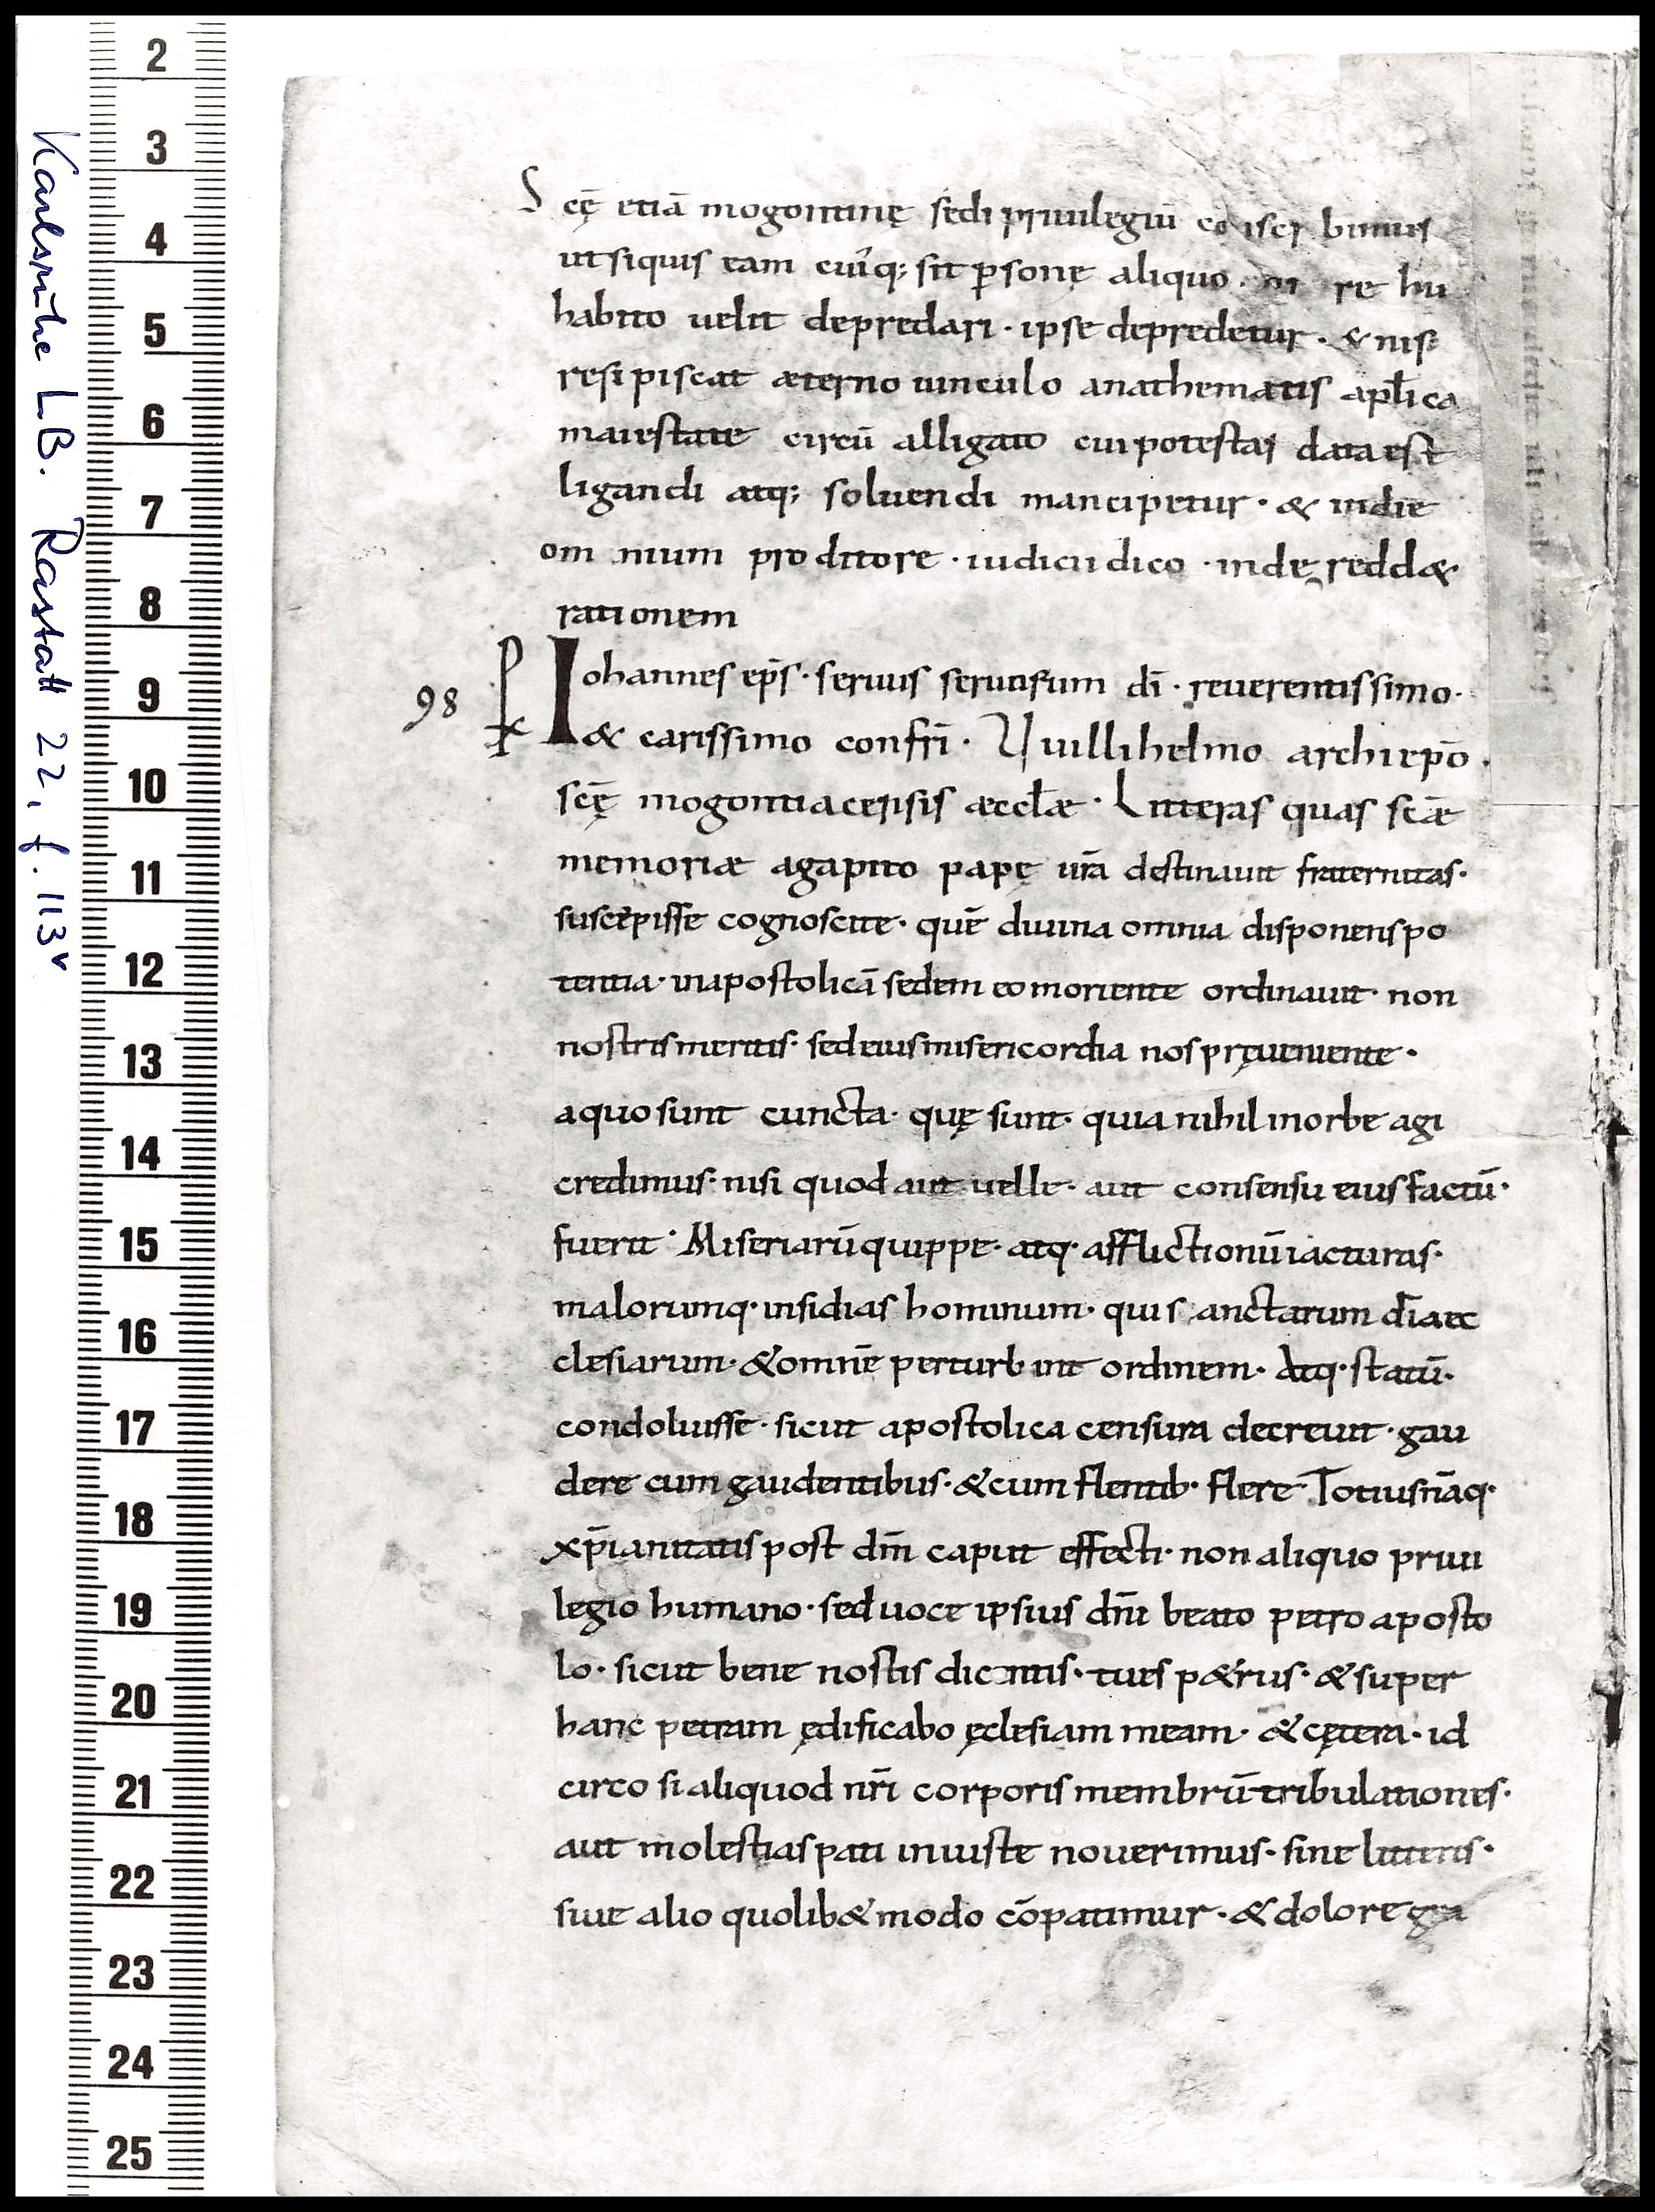 Scę̄ etiā mogontinę sedi priuilegiū
ut siquis eam cui'q; sit p̄sonę aliquo re hu
habito uelit depredari · ipse depredetur · & nisi
resipiscat æterno uinculo anathematis apl̄ica
maiestate circū alligato cui potestas data est
ligandi atq; soluendi mancipetur · & in die
omnium proditore · iudicii dico · indę redd&
rationem
98
Iohannes ep̄s · seruus seruorum dī · reuerentissimo ·
& carissimo confr̄i · Vuillihelmo archiep̄o ·
scę̄ mogontiacensis æccl̄æ · Litteras quas sc̄æ
memoriæ agapito papę ur̄a destinauit fraternitas ·
suscepisse cognoscite · quē diuina omnia disponens po
tentia · in apostolicā sedem eo moriente ordinauit · non
nostris meritis · sed eius misericordia nos pręueniente ·
a quo sunt cuncta · quę sunt · quia nihil in orbe agi
credimus · nisi quod aut uelle · aut consensu eius factū ·
fuerit · Miseriarū quippe · atq · afflictionū iacturas ·
malorumq · insidias hominum · qui sanctarum dī aec
clesiarum · & omnē perturbant ordinem · Atq · statū ·
condoluisse · sicut apostolica censura decreuit · gau
dere cum gaudentibus · & cum flentib · flere Totius nāq ·
xp̄ianitatis post dn̄m caput effecti · non aliquo priui
legio humano · sed uoce ipsius dn̄i beato petro aposto
lo · sicut bene nostis dicentis · tu es p&rus · & super
hanc petram ędificabo ęclesiam meam · & cętera · id
circo si aliquod nr̄i corporis membrū tribulationes ·
aut molestias pati iniuste nouerimus · siue litteris ·
siue alio quolib& modo cōpatimur · & dolore gra
2
3
4
5
6
7
8
9
10
11
12
13
14
15
16
17
18
19
20
21
22
23
24
25
Karlsruhe LB. Rastatt 22, f. 113v